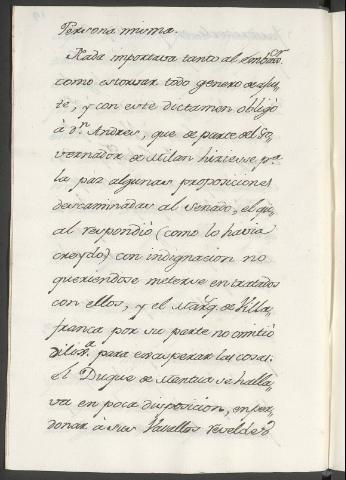 Persona misma.
Nada importava tanto al Embax.or
como estorvar todo genero de ajus,
te, y con este dictamen obligò
à D.n Andres, que de parte del Go,
vernador de Milan hiziesse p.a
la paz algunas proposiciones
descaminadas al Senado, el qe,
al respondiò (como lo havia
creydo) con indignacion no
queriendose meterse en tratados
con ellos, y el Marq. de Villa,
franca por su parte no omitiò
dilix.a para exasperar las cosas.
El Duque de Mantua se halla,
va en poca disposicion, en per,
donar à sus Vasallos reveldes